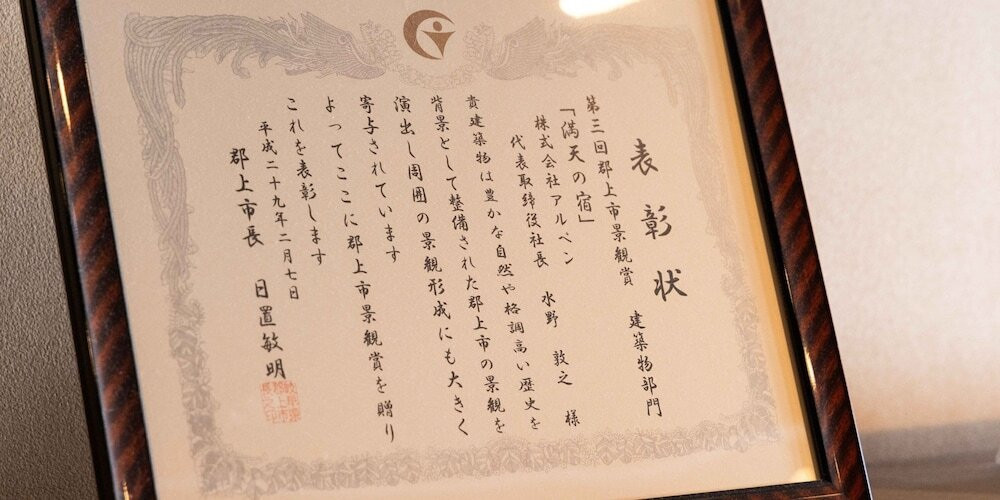 表彰状
第三回郡上市景観賞 建築物部門
「満天の宿」
株式会社アルペン
代表取締役社長 水野 敦之 様
貴建築物は豊かな自然や格調高い歴史を
背景として整備された郡上市の景観を
演出し周囲の景観形成にも大きく
寄与されています
よってここに郡上市景観賞を贈り
これを表彰します
平成二十九年二月七日
郡上市長 日置敏明